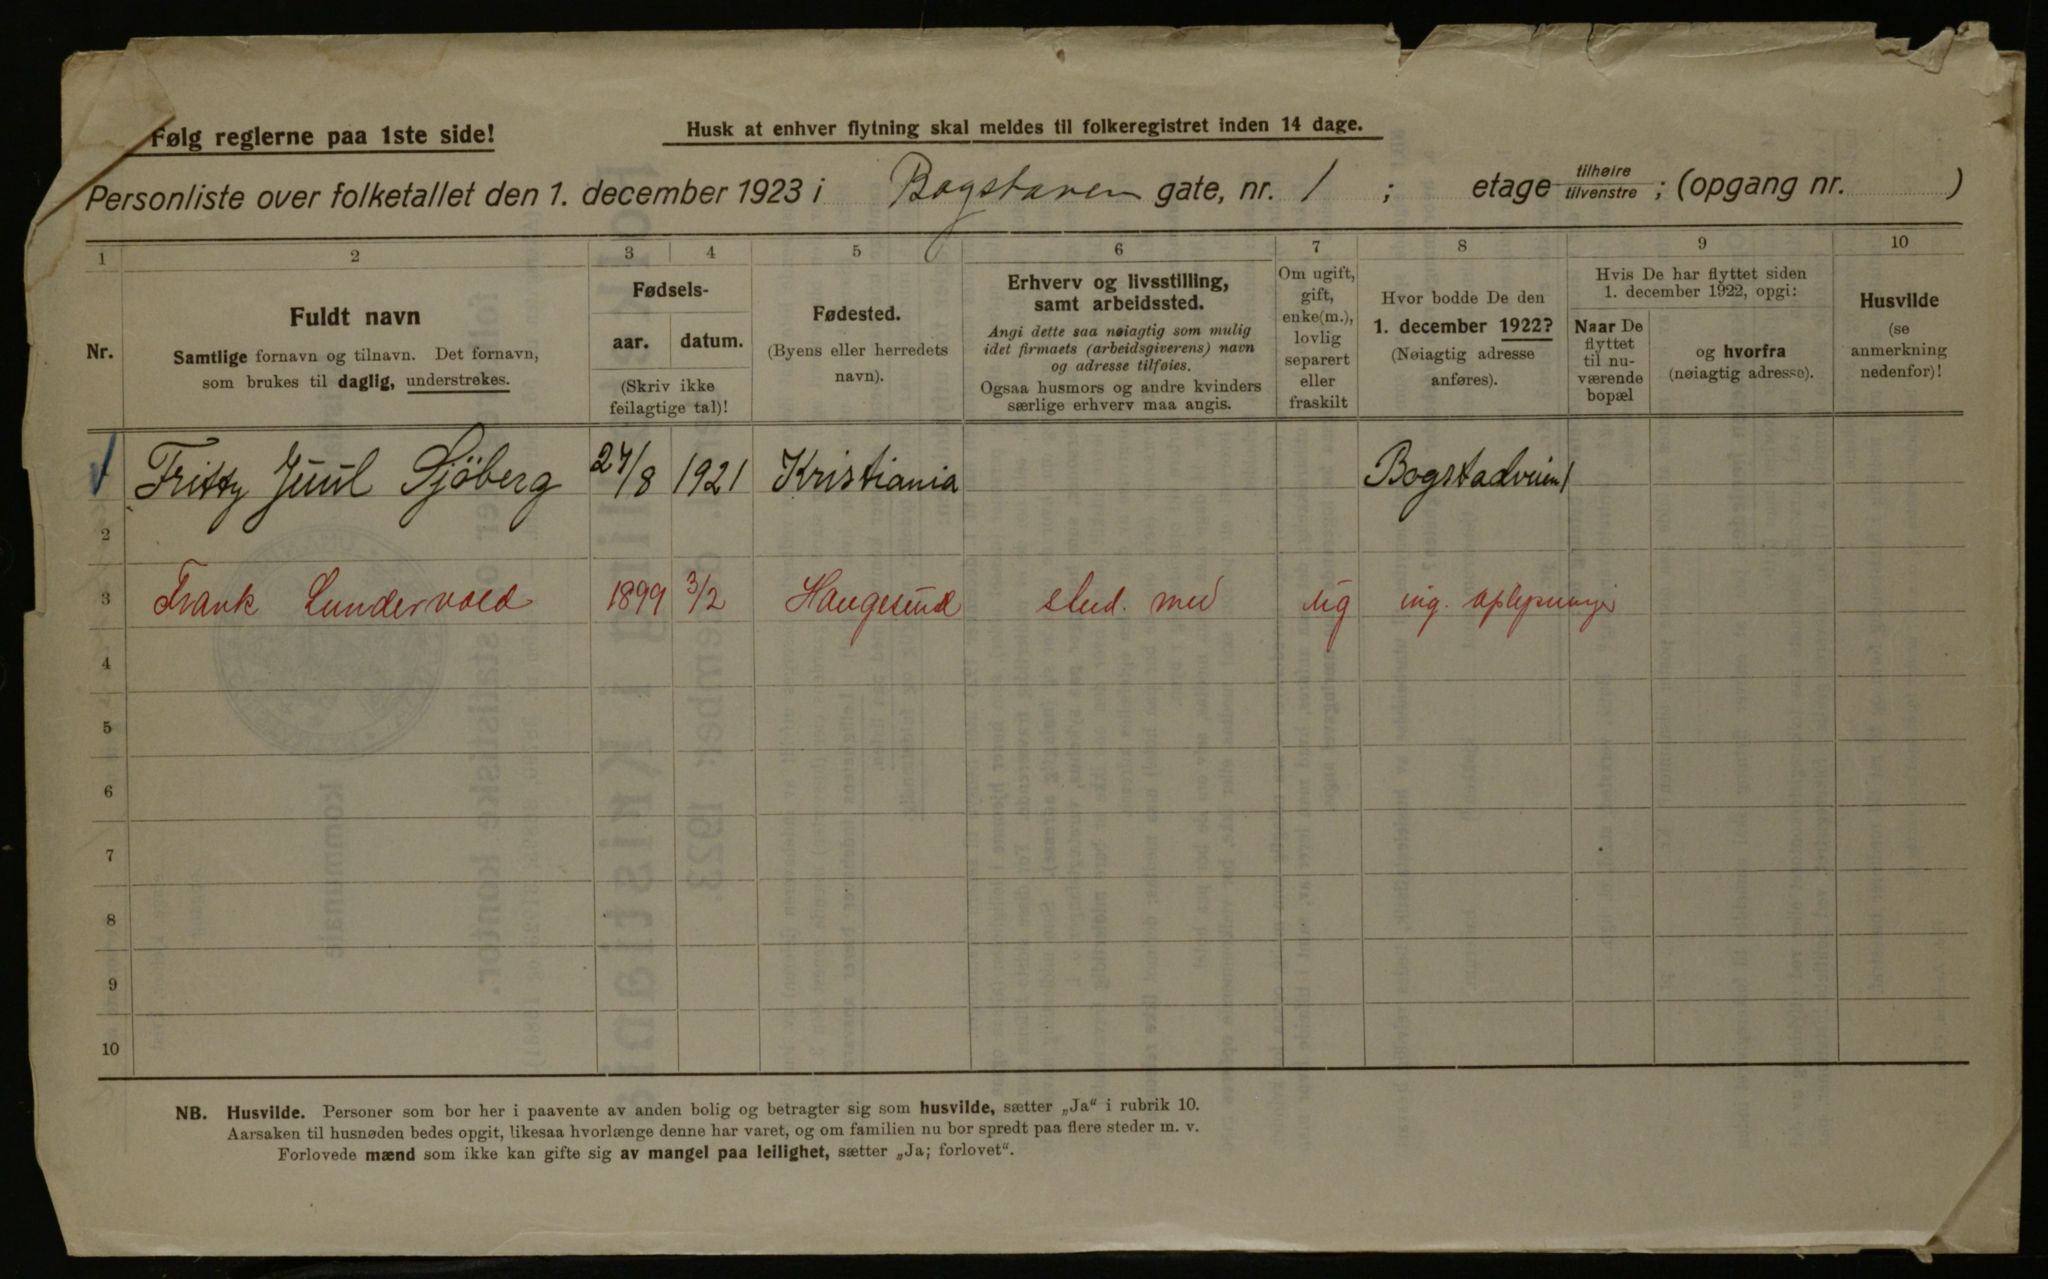 Følg reglerne paa 1ste side!
Husk at enhver flytning skal meldes til folkeregistret inden 14 dage.
Personliste over folketallet den 1. december 1923 i Bogstaveien gate, nr. 1 ; etage tilhøire/tilvenstre ; (opgang nr. )
1 2 3 4 5 6 7 8 9 10
Nr.
Fuldt navn
Samtlige fornavn og tilnavn. Det fornavn,
som brukes til daglig, understrekes.
Fødsels-
aar. datum.
(Skriv ikke
feilagtige tal)!
Fødested.
(Byens eller herredets
navn).
Erhverv og livsstilling,
samt arbeidssted.
Angi dette saa nøiagtig som mulig
idet firmaets (arbeidsgiverens) navn
og adresse tilføies.
Ogsaa husmors og andre kvinders
særlige erhverv maa angis.
Om ugift,
gift,
enke(m.),
lovlig
separert
eller
fraskilt
Hvor bodde De den
1. december 1922?
(Nøiagtig adresse
anføres).
Hvis De har flyttet siden
1. december 1922, opgi:
Naar De
flyttet
til nu-
værende
bopæl
og hvorfra
(nøiagtig adresse).
Husvilde
(se
anmerkning
nedenfor)!
1 Fritty Juul Sjöberg 27/8 1921 Kristiania Bogstadveien 1
2
3 Frank Lundervold 1899 3/2 Haugesund stud. med ug ing. oplysninger
4
5
6
7
8
9
10
NB. Husvilde. Personer som bor her i paavente av anden bolig og betragter sig som husvilde, sætter „Ja“ i rubrik 10.
Aarsaken til husnøden bedes opgit, likesaa hvorlænge denne har varet, og om familien nu bor spredt paa flere steder m. v.
Forlovede mænd som ikke kan gifte sig av mangel paa leilighet, sætter „Ja; forlovet“.